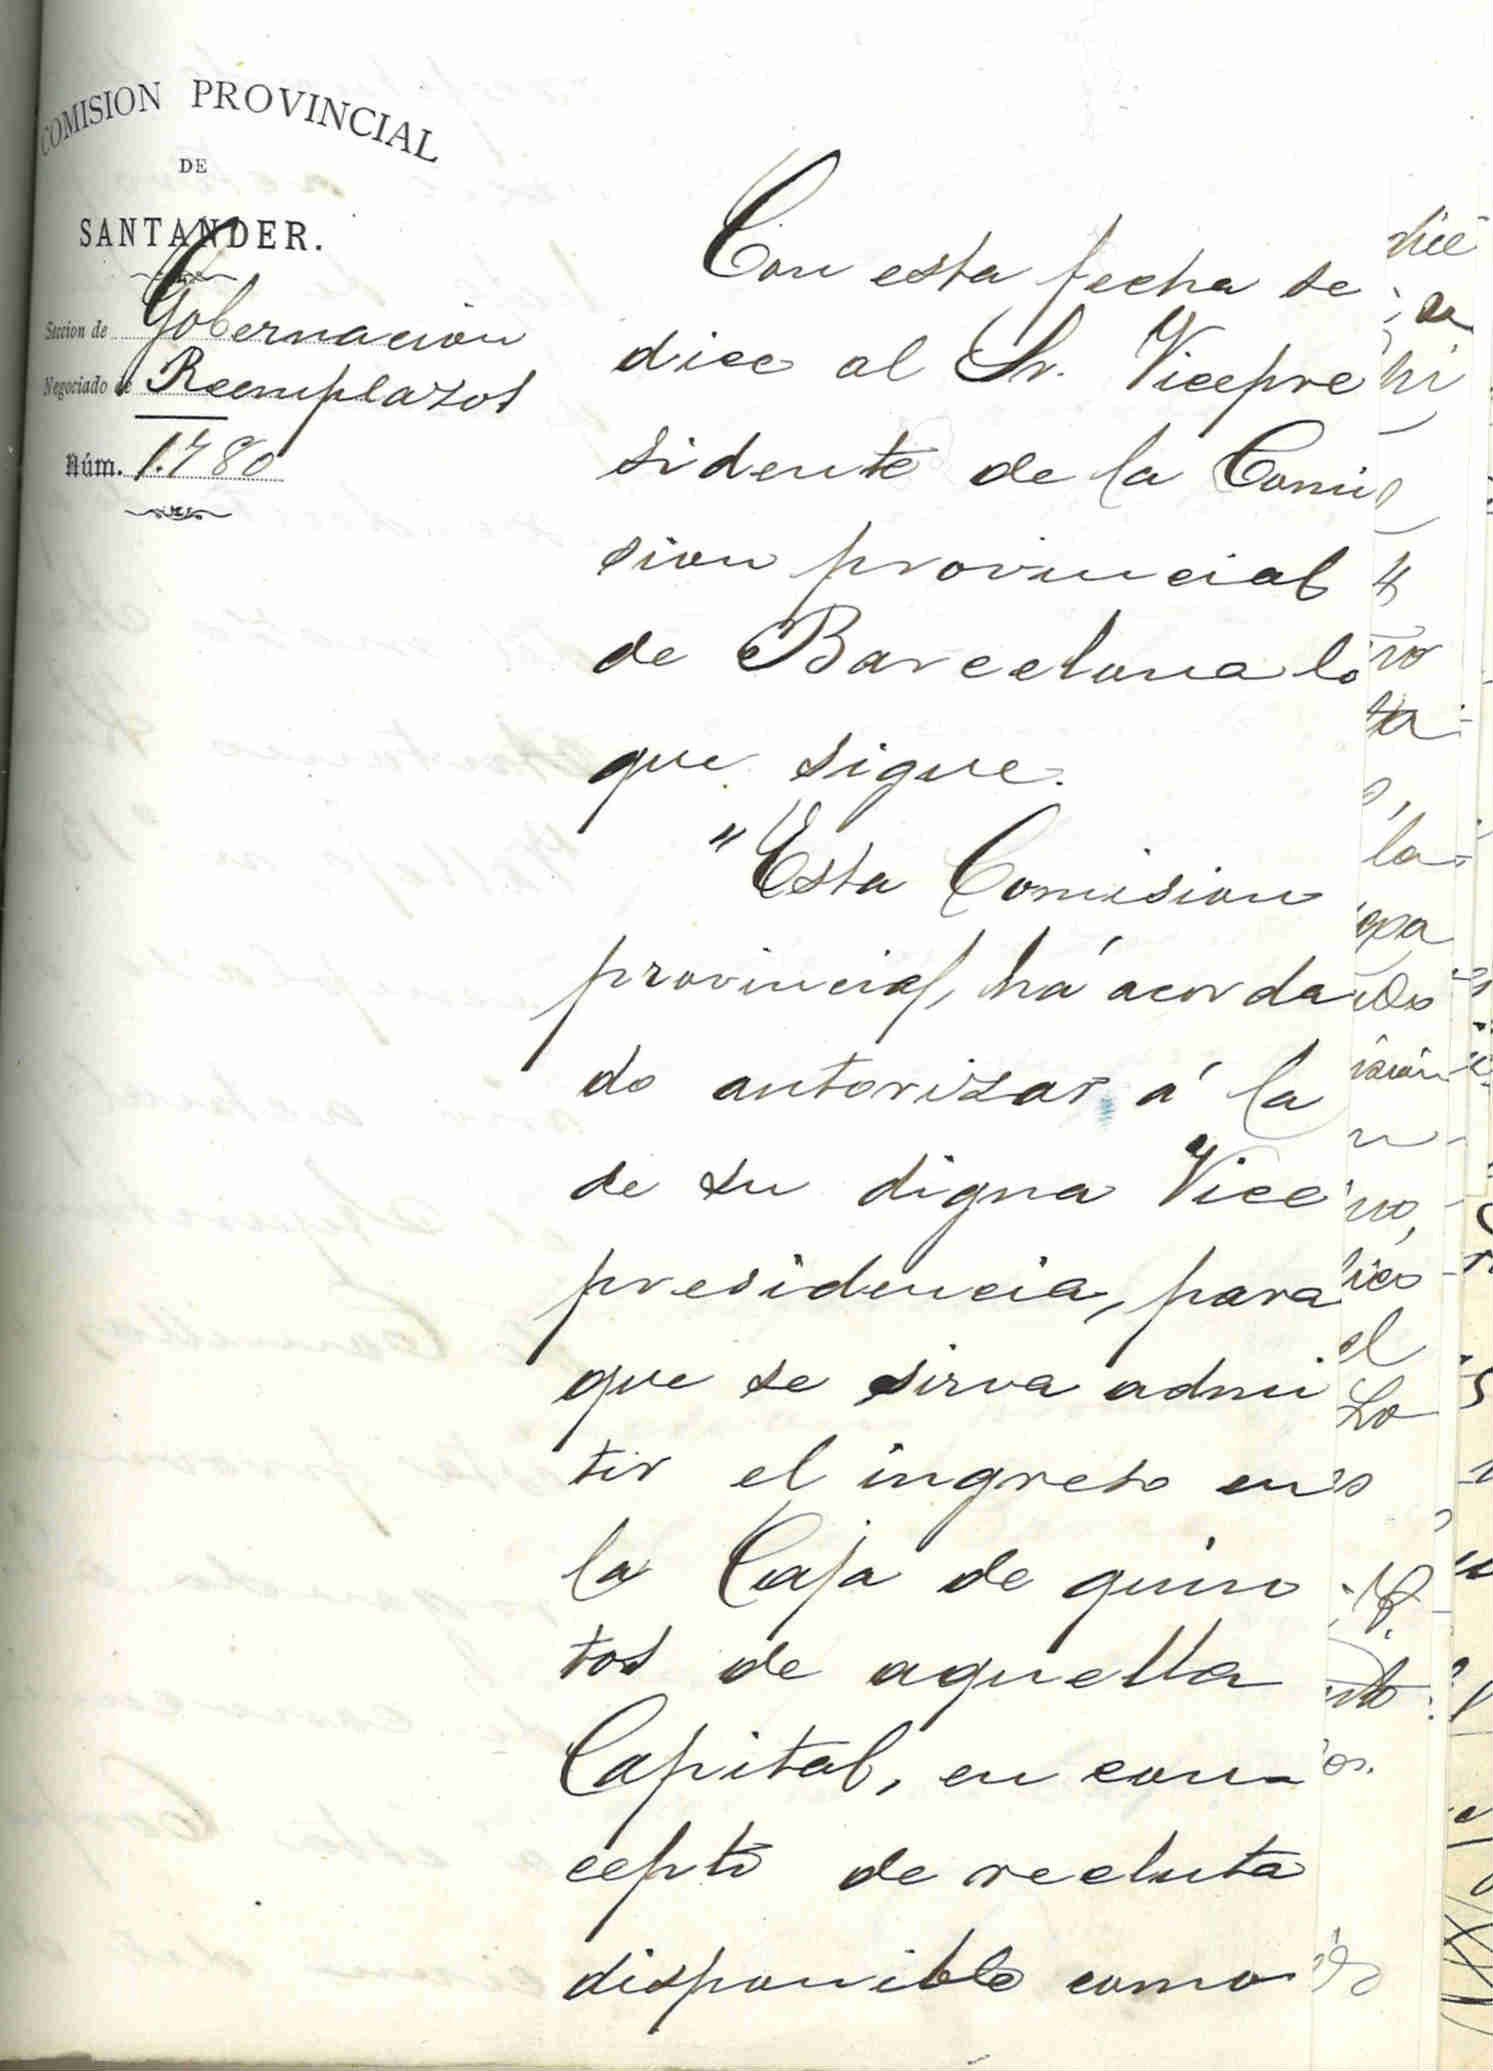 COMISION PROVINCIAL
DE
SANTANDER.
Seccion de Gobernacion
Negociado de Reemplazos
Núm. 1.780
Con esta fecha se
dice al Sr. Vicepre
sidente de la Comi
sion provincial
de Barcelona lo
que sigue.
"Esta Comision
provincial, há acorda
do autorizar á la
de su digna Vice
presidencia, para
que se sirva admi
tir el ingreso en
la Caja de quin
tos de aquella
Capital, en con-
cepto de recluta
disponible como